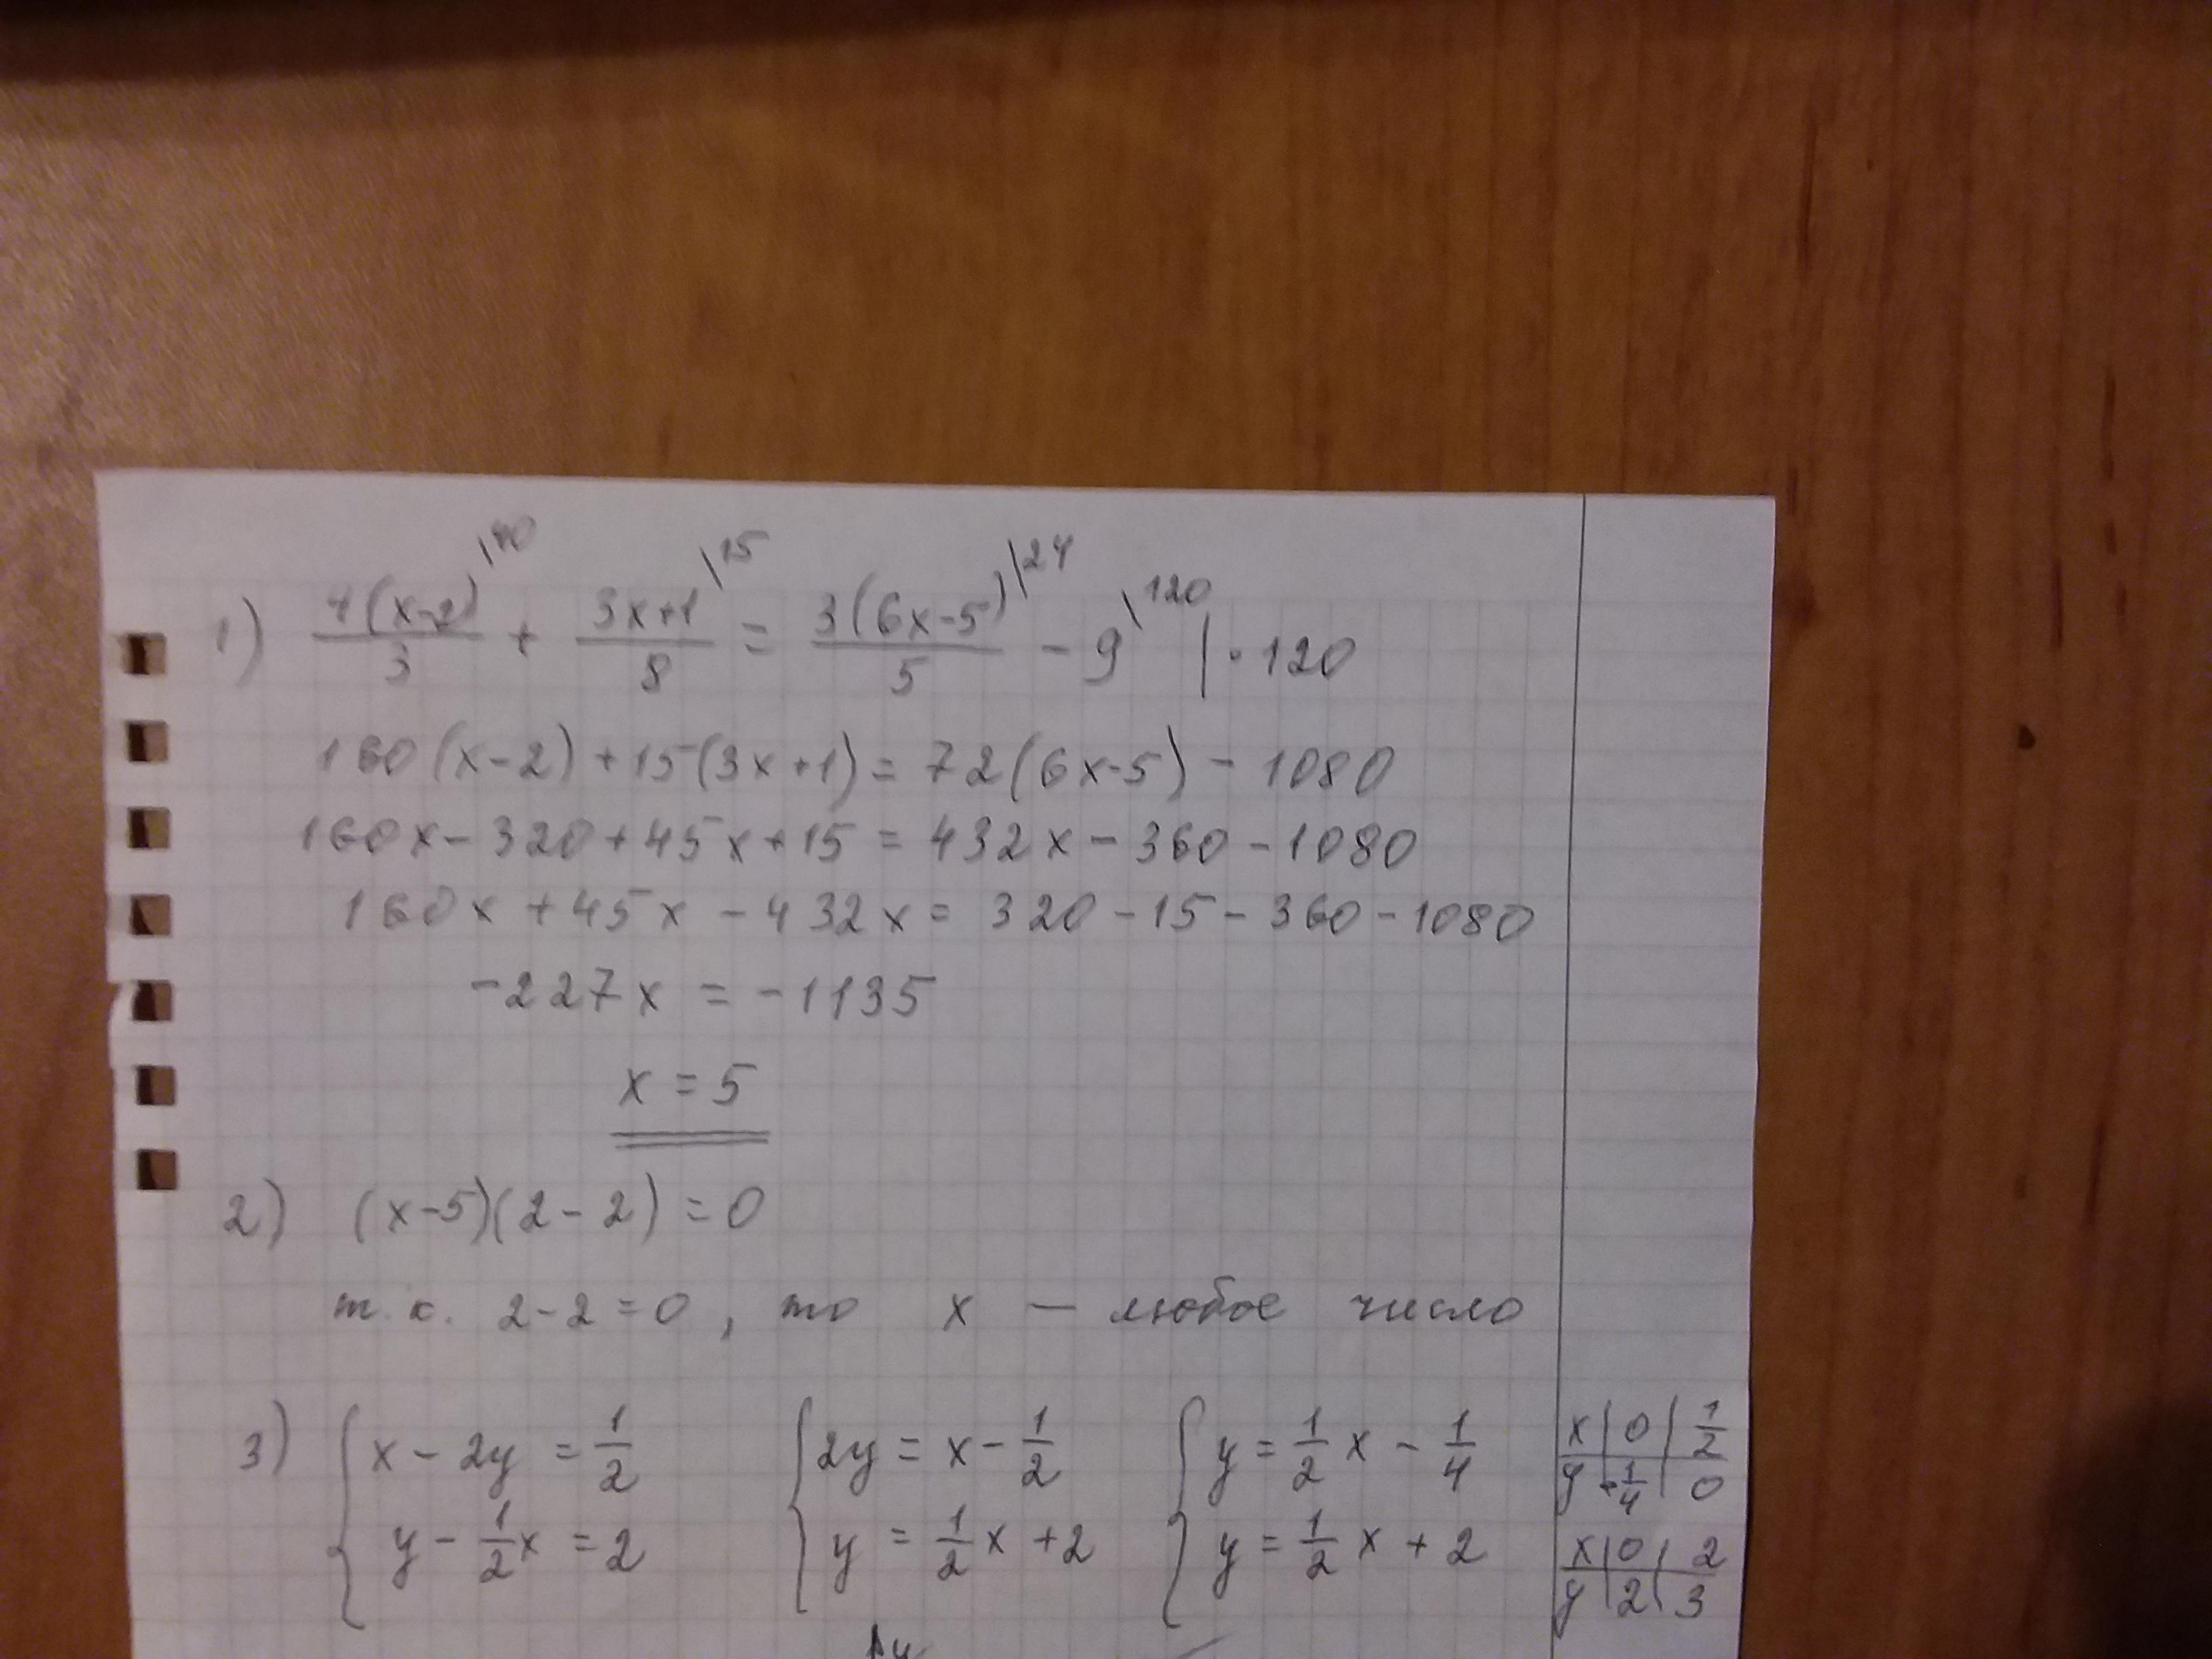 1) 4(x-2)/3 \40 + 3x+1/8 \15 = 3(6x-5)/5 \24 - 9 \120 | · 120
160(x-2)+15(3x+1)=72(6x-5)-1080
160x-320+45x+15=432x-360-1080
160x+45x-432x=320-15-360-1080
-227x=-1135
x=5
2) (x-5)(2-2)=0
т.к. 2-2=0, то x — любое число
3) { x-2y=1/2 { 2y=x-1/2 { y=1/2x-1/4 x|0|1/2
y-1/2x=2 y=1/2x+2 y=1/2x+2 y|-1/4|0
x|0|2
y|2|3
y